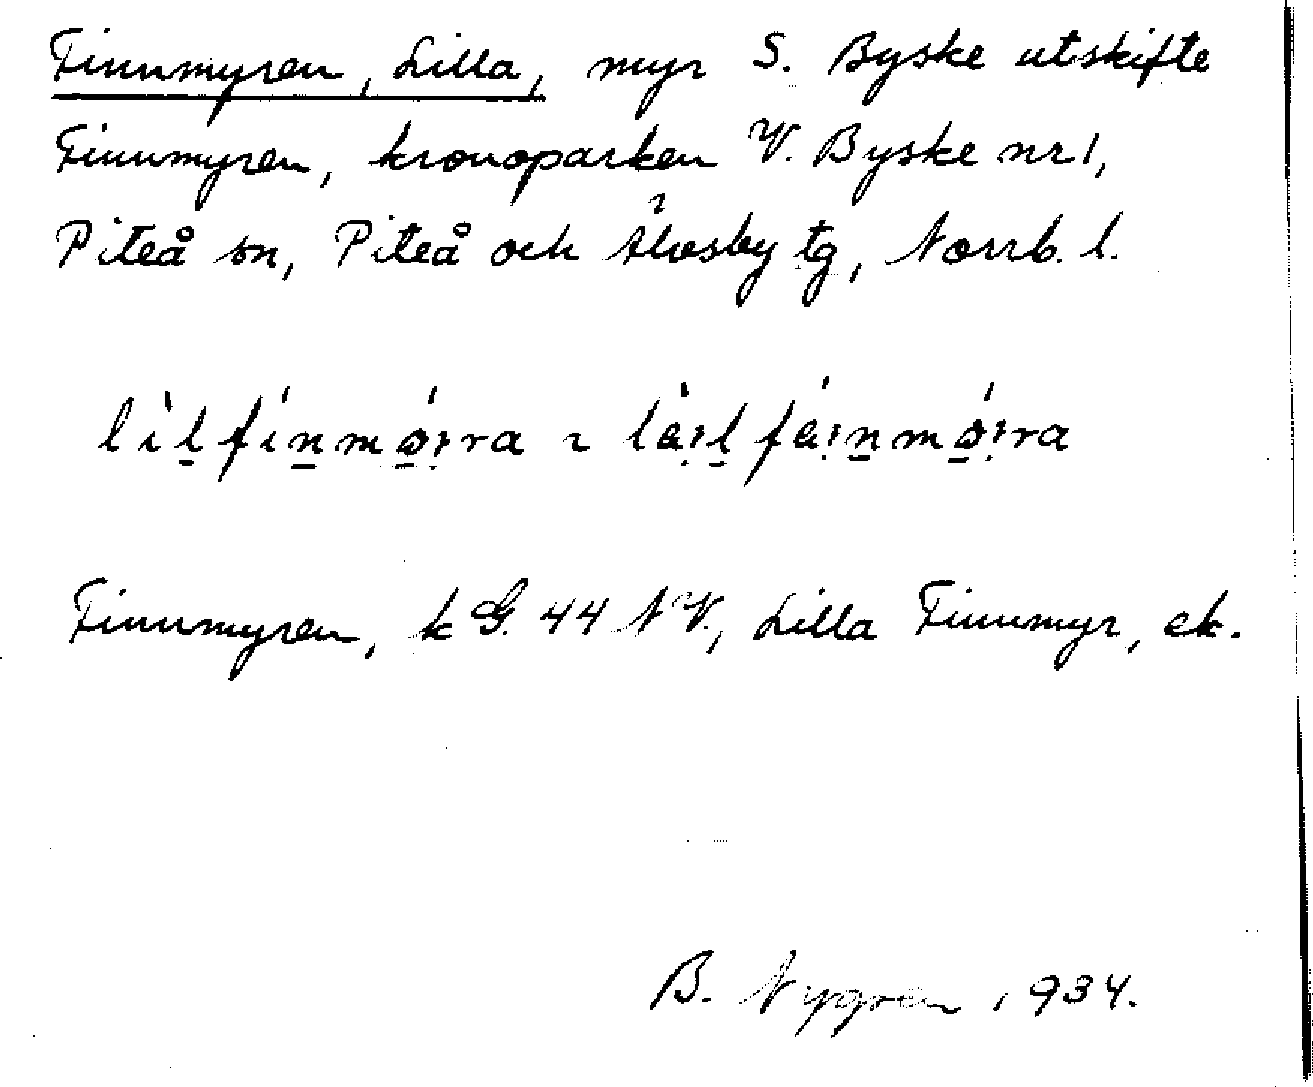 Finnmyren, Lilla, myr S. Byske utskifte
Finnmyren, kronoparken V. Byske nr 1,
Piteå sn, Piteå och Älvsby tg, Norrb. l.
Finnmyren, k G. 44 NV., Lilla Finnmyr, ek.
B. Nygren 1934.